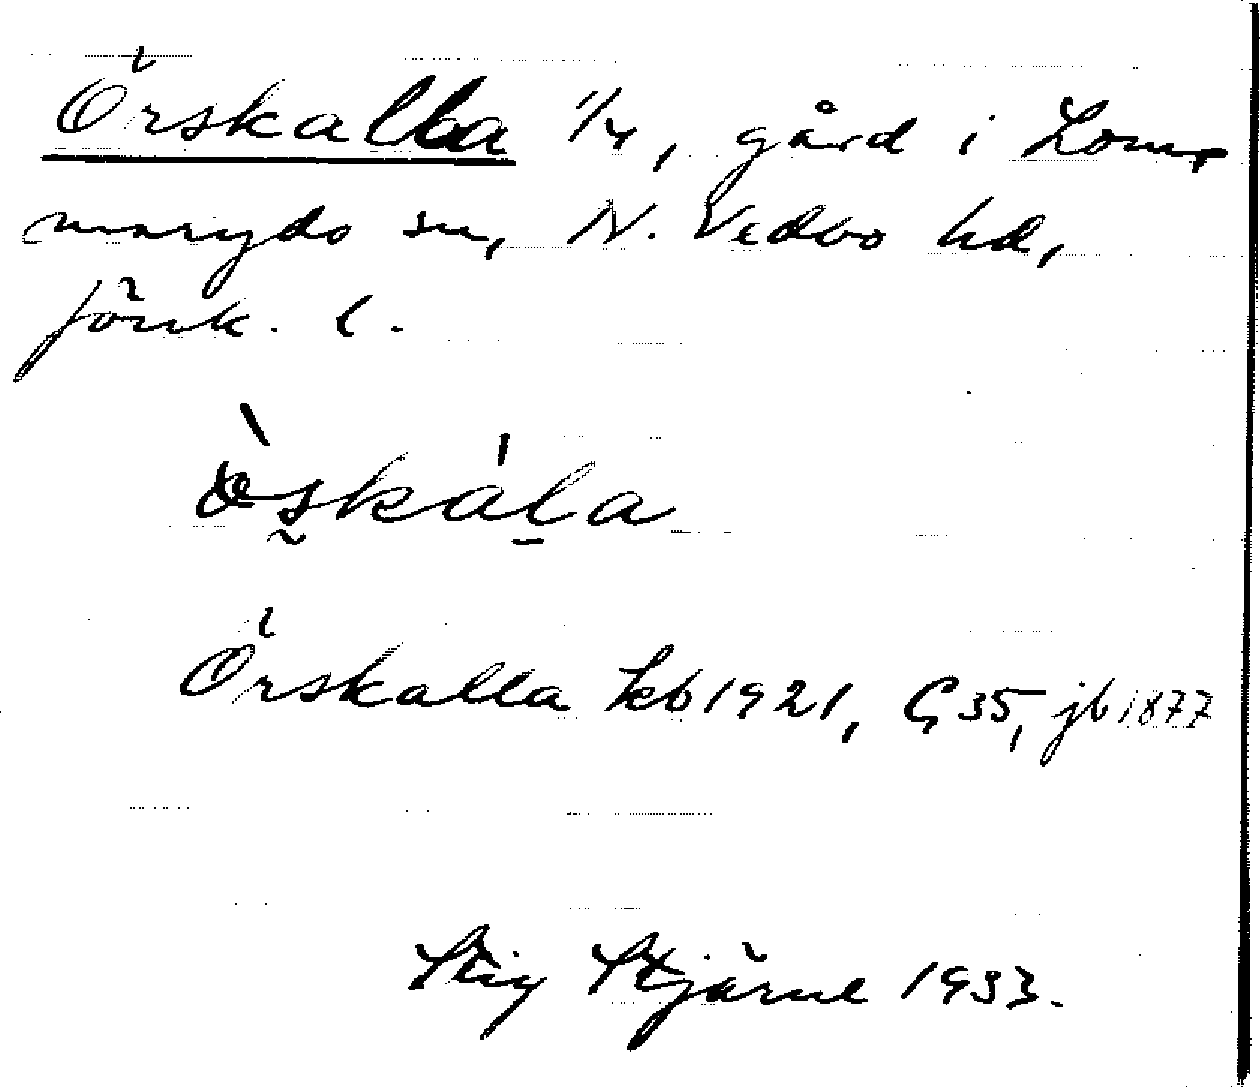 Örskalla 1/4, gård i Lom-
maryds sn, N. Vedbo hd,
Jönk. l.
ö̀s̰kál̠a
Örskalla kb 1921, G 35, jb 1877
Stig Stjärne 1933.